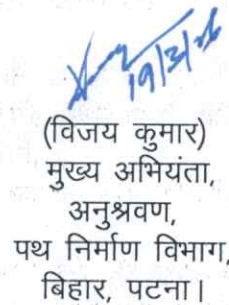 19/3/26
(विजय कुमार)
मुख्य अभियंता,
अनुश्रवण,
पथ निर्माण विभाग,
बिहार, पटना।